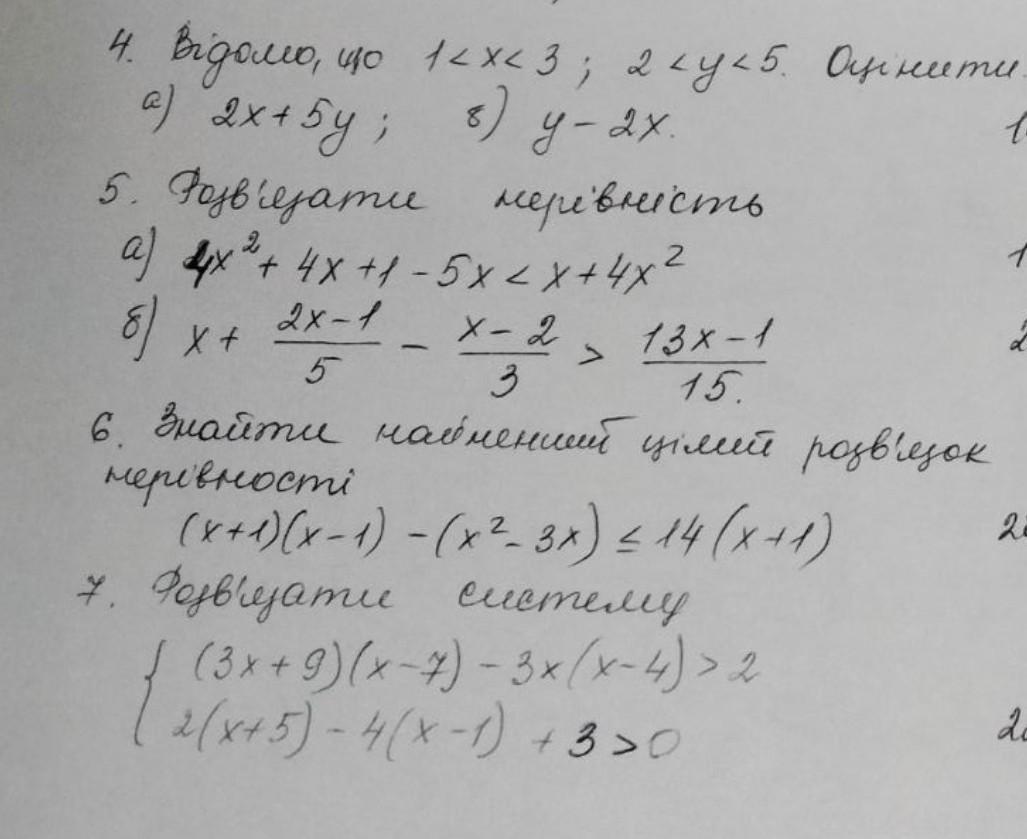 4. Відомо, що 1 < x < 3 ; 2 < y < 5. Оцінити:
а) 2x + 5y ; б) y - 2x.
5. Розв'язати нерівність
а) 4x² + 4x + 1 - 5x < x + 4x²
б) x + (2x - 1)/5 - (x - 2)/3 > (13x - 1)/15.
6. Знайти найменший цілий розв'язок
нерівності
(x+1)(x-1) - (x² - 3x) ≤ 14(x+1)
7. Розв'язати систему
{ (3x + 9)(x - 7) - 3x(x - 4) > 2
2(x+5) - 4(x - 1) + 3 > 0